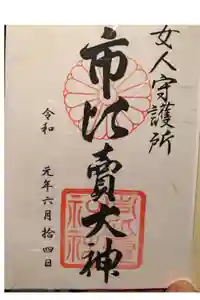 女人守護所
市比賣大神
令和
元年六月拾四日